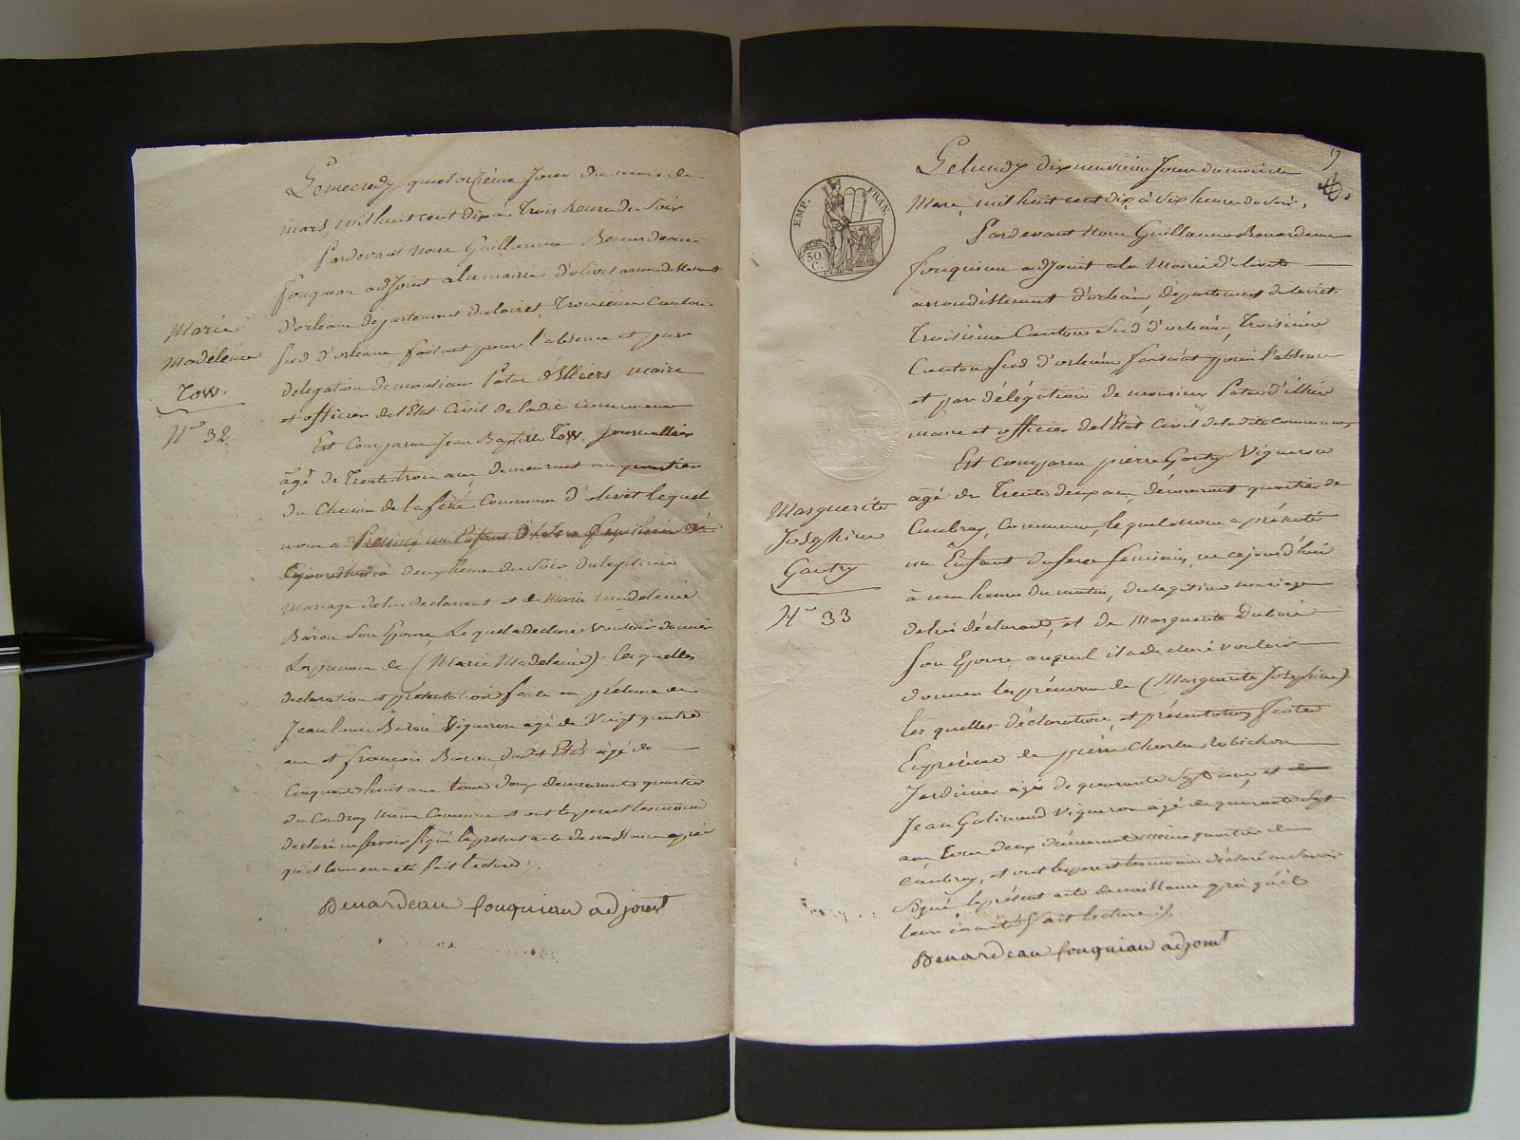 Marie
Madeleine
Tow.
N° 32
Le mecredy quatorzième Jour du mois de
mars, mil huit cent dix à Trois heure du Soir
Pardevant Nous Guillaume Benardeau
fouquiau adjoint a la mairie d'olivet
d'orleans departement du loiret, Troisiéme Canton
Sud d'orleans faisant pour l'absence et par
delegation de monsieur Pater d'Illiers maire
et officier de l'État Civil de ladite commune
Est Comparu Jean Baptiste Tow. journallier
âgé de Trente trois ans demeurant au quartier
du Chemin de la ferté Commune d'olivet lequel
nous a
deux heure du Soir du legitime
Mariage de lui declarant et de Marie madeleine
Baron Son Epouse, Lequel a declaré Vouloir donner
Les prenom de (Marie Madeleine) Lesquelles
declaration et présentation faite en présence de
Jean louis Baron Vigneron agé de Vingt quatre
ans et françois Baron dudit Etat agé de
Cinquante huit ans tous deux demeurant quartier
du Coudray même Commune et ont le pere et les temoins
declaré ne savoir signé le present acte de naissance après
qu'il leur en a été fait lecture
Benardeau fouquiau adjoint
EMP. FRAN.
50
C.
Marguerite
Joséphine
Gautry
N° 33
Le lundy dix neuvième Jour du mois de
Mars, mil huit cent dix, à Six heure du Soir,
Pardevant Nous Guillaume Benardeau
fouquiau adjoint a la Mairie d'olivet
arrondissement d'orléans, departement du loiret
Troisième Canton Sud d'orléans, Troisième
Canton Sud d'orléans faisant pour l'absence
et par délégation de monsieur Pater d'illiers
maire et officier de l'État Civil de ladite commune
Est comparu pierre Gautry Vigneron
agé de Trente deux ans, demeurant quartier de
Caubray, Commune, lequel nous a présenté
un Enfant du sexe feminin, né cejourd'hui
à une heure du matin, du legitime mariage
de lui déclarant, et de Marguerite
Son Epouse, auquel il a declaré vouloir
donner les prénom de (Marguerite Joséphine)
les quelles déclaration, et présentation faites
En présence de pierre Charles Robichon
Jardinier agé de quarante Sept ans, et de
Jean Galimard Vigneron agé de quarante Sept
ans Tous deux demeurant même quartier de
Caubray, et ont le pere et les temoins déclaré ne Savoir
Signé le présent acte de naissance après qu'il
leur en a été fait lecture
Benardeau fouquiau adjoint